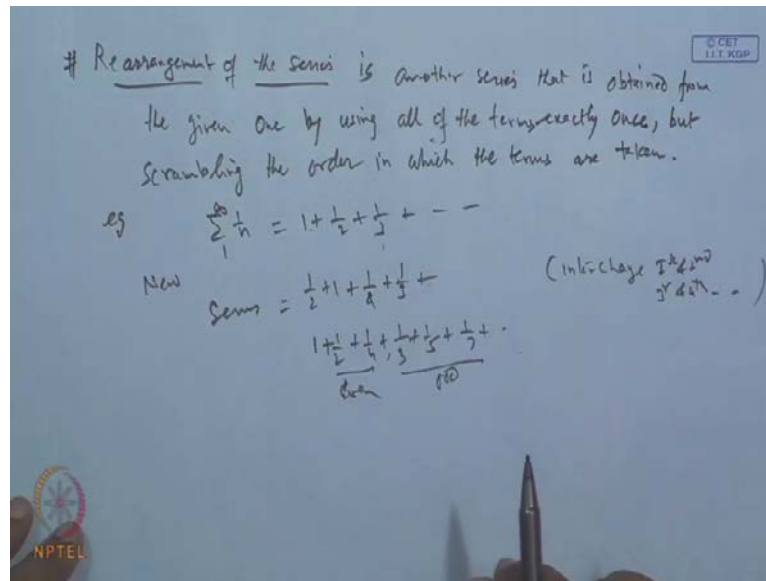 © CET
I.I.T. KGP
# Rearrangement of the series is another series that is obtained from
the given one by using all of the terms exactly once, but
scrambling the order in which the terms are taken.
eg ∞ Σ 1 1/n = 1 + 1/2 + 1/3 + - -
New Series = 1/2 + 1 + 1/4 + 1/3 + (Interchage Ist & IInd
3r & 4th - - )
1 + 1/2 + 1/4 + 1/3 + 1/5 + 1/7 + .
Even odd
NPTEL